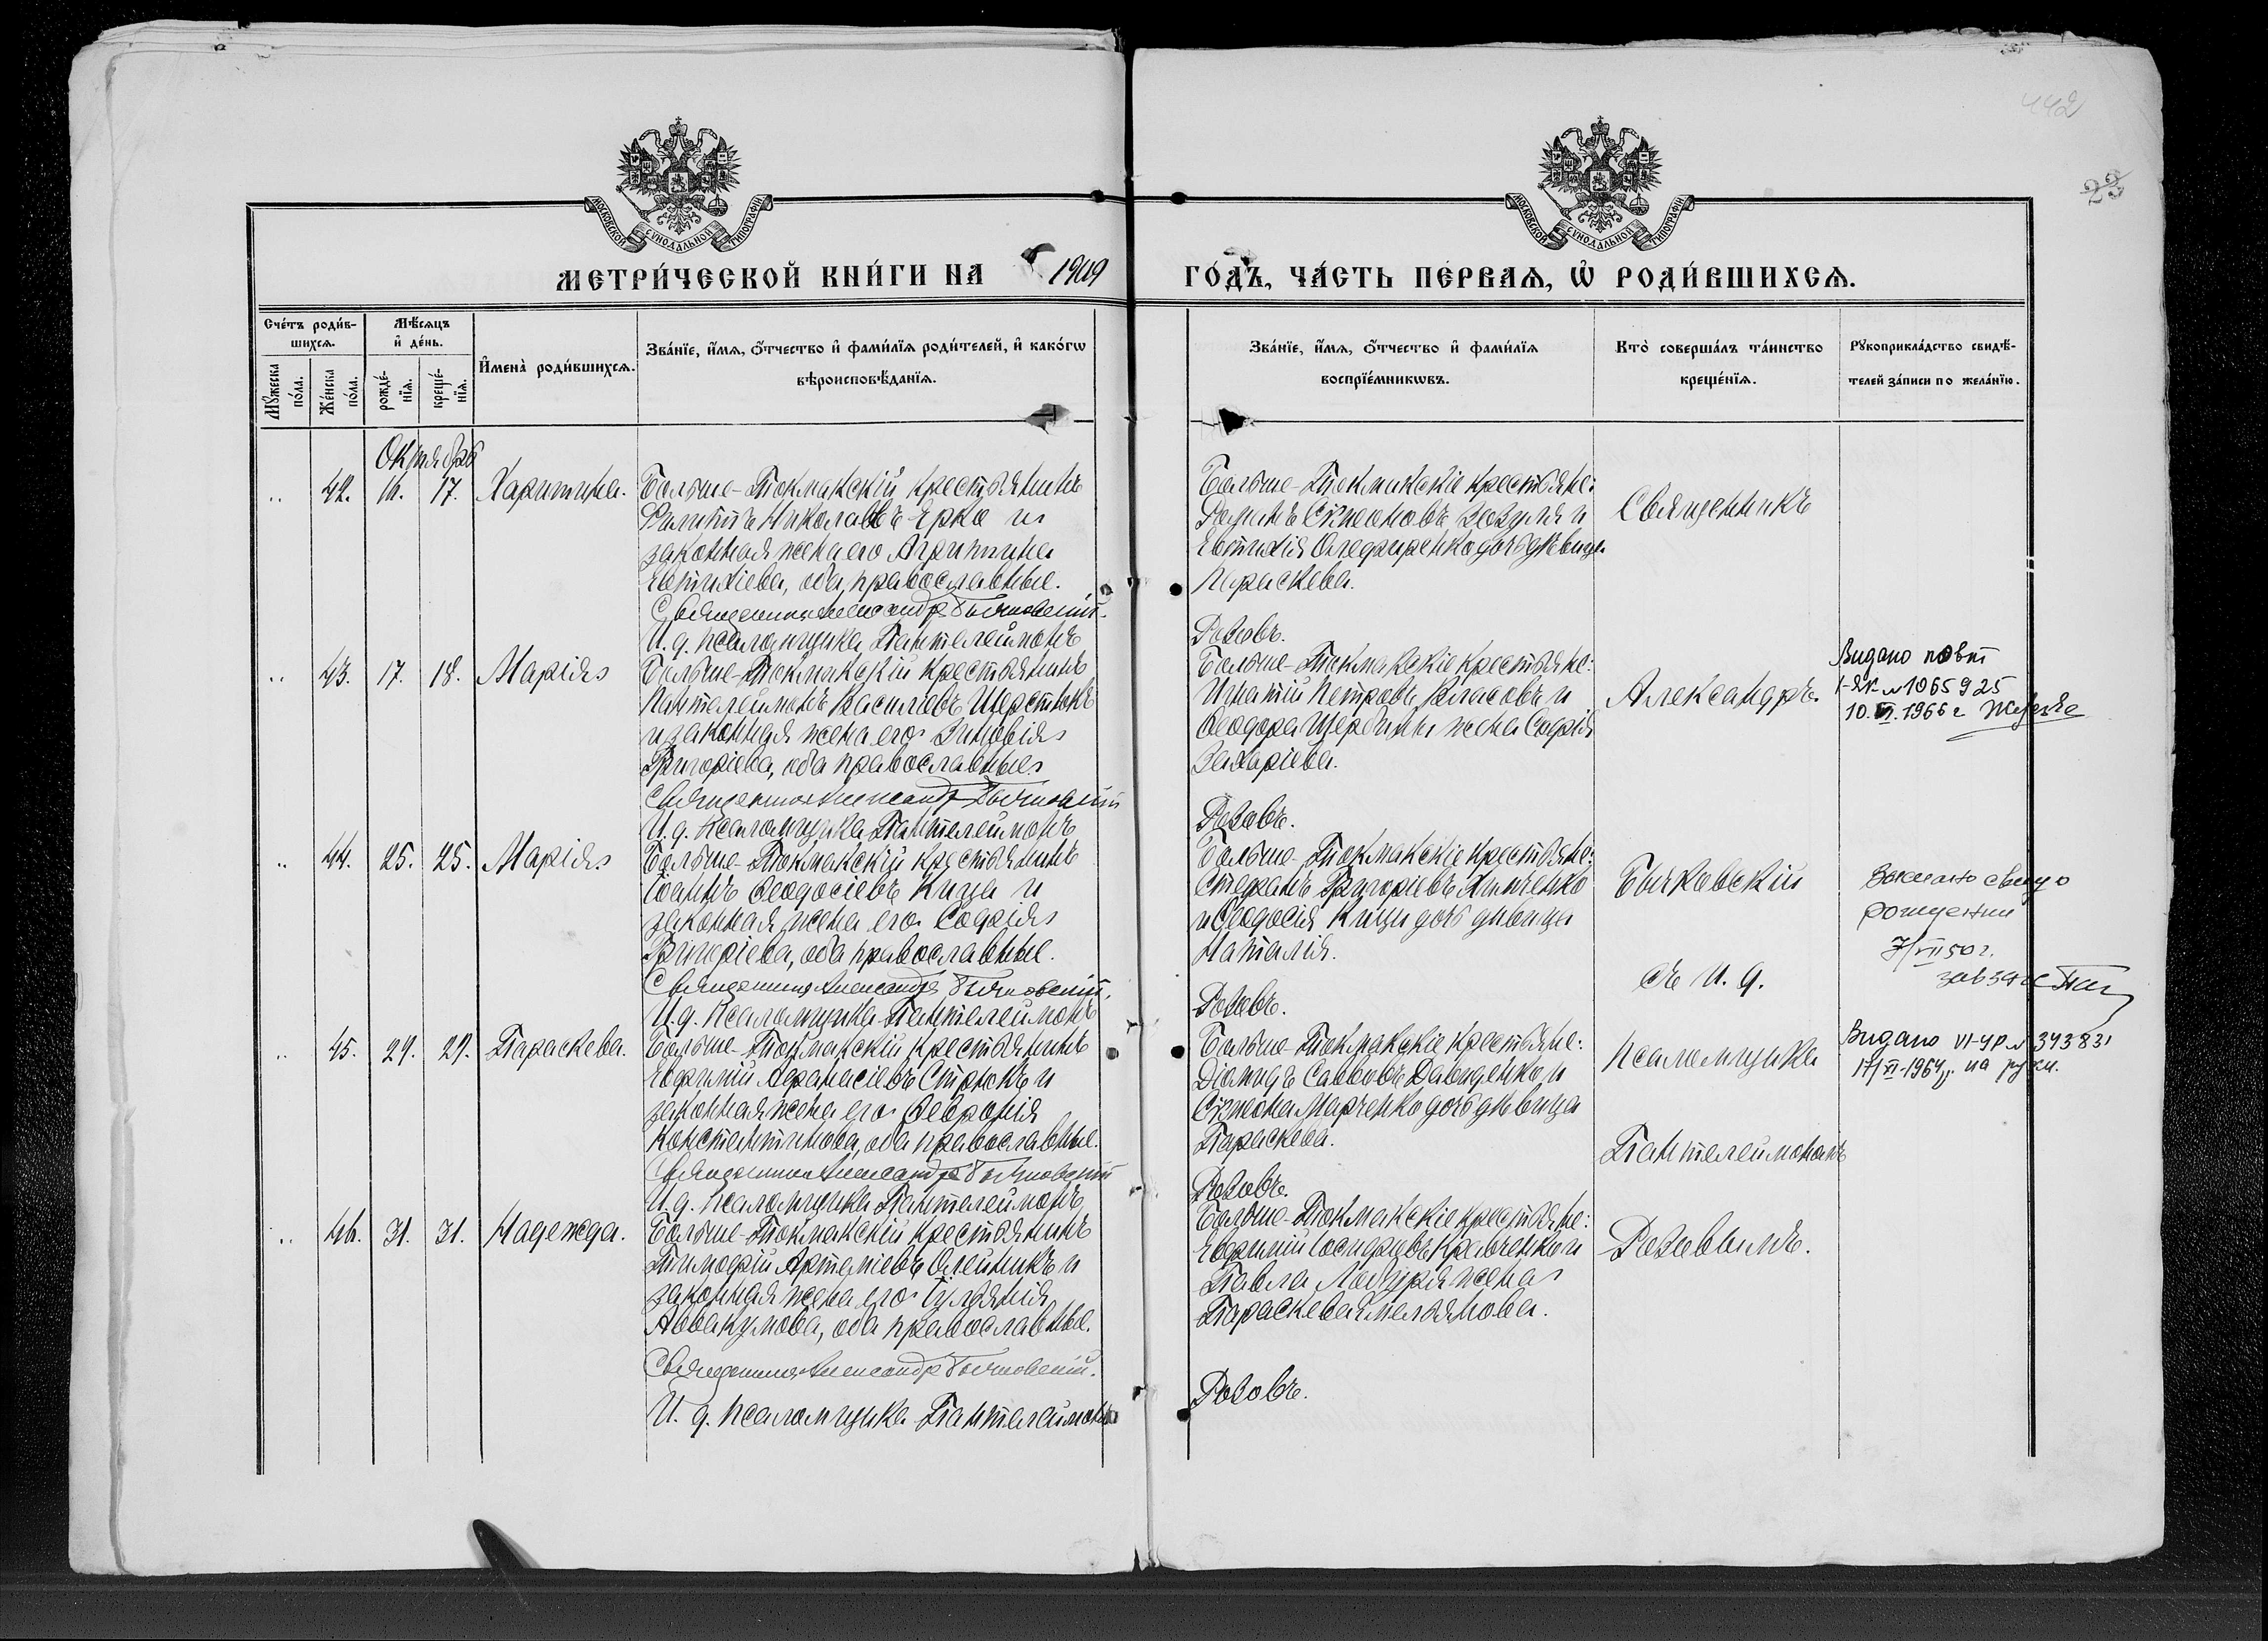 442
23
МОСКОВСКОЙ СУНОДАЛЬНОЙ ТИПОГРАФІИ
МОСКОВСКОЙ СУНОДАЛЬНОЙ ТИПОГРАФІИ
МЕТРИ́ЧЕСКОЙ КНИ́ГИ НА 1909 ГО́ДЪ, ЧА́СТЬ ПЕ́РВАѦ, Ѡ҆ РОДИ́ВШИХСѦ.
Сче́тъ роди́в-
шихсѧ.
Мꙋ́жеска по́ла.
Же́нска по́ла.
Мѣ́сѧцъ
и҆ де́нь.
рожде́-
нїѧ.
креще́-
нїѧ.
И҆мена̀ роди́вшихсѧ.
Зва́нїе, и҆́мѧ, ѻ҆́тчество и҆ фами́лїѧ роди́телей, и҆ како́гѡ
вѣроисповѣ́данїѧ.
Зва́нїе, и҆́мѧ, ѻ҆́тчество и҆ фами́лїѧ
воспрїе́мникѡвъ.
Кто̀ соверша́лъ та́инство
креще́нїѧ.
Рꙋкоприкла́дство свидѣ́-
телей за́писи по жела́нїю.
Октябрь
42. 16. 17. Харитина.
Больше-Токмакскій крестьянинъ
Филиппъ Николаевъ Ярко и
законная жена его Агрипина
Евтихіева, оба православные.
Священникъ Александръ Бычковскій.
И. д. псаломщика Пантелеимонъ
Больше-Токмакскіе крестьяне:
Романъ Сѵмеоновъ Зозуля и
Евтихія Олефиренко дочь дѣвица
Параскева.
Розовъ.
43. 17. 18. Марія
Больше-Токмакскій крестьянинъ
Пантелеимонъ Васильевъ Шерстюкъ
и законная жена его Зиновія
Григоріева, оба православные
Священникъ Александръ Бычковскій
И. д. псаломщика Пантелеимонъ
Больше-Токмакскіе крестьяне:
Игнатій Петровъ Власовъ и
Ѳеодора Щербины жена Софія
Захаріева.
Розовъ.
Видано повт
1-ЯК №1065925
10.VI.1966 г
44. 25. 25. Марія
Больше-Токмакскій крестьянинъ
Іоаннъ Ѳеодосіевъ Кица и
законная жена его Софія
Григоріева, оба православные.
Священникъ Александръ Бычковскій.
И. д. псаломщика Пантелеимонъ
Больше-Токмакскіе крестьяне:
Стефанъ Григоріевъ
и Ѳеодосія Кицы дочь дѣвица
Наталія.
Розовъ.
рождении
7/VII 50 г.
45. 29. 29. Параскева.
Больше-Токмакскій крестьянинъ
Евфимій Аѳанасіевъ Стрюкъ и
законная жена его Февронія
Константинова, оба православные.
Священникъ Александръ Бычковскій
И. д. псаломщика Пантелеимонъ
Больше-Токмакскіе крестьяне:
Діомидъ Савовъ Давиденко и
Сѵмеона Марченко дочь дѣвица
Параскева.
Розовъ.
Видано VI-УР №343831
17/VI-1964 г. на руки.
46. 31. 31. Надежда.
Больше-Токмакскій крестьянинъ
Тимофій Артеміевъ Олейникъ и
законная жена его Іуліанія
Аввакумова, оба православные.
Священникъ Александръ Бычковскій.
И. д. псаломщика Пантелеимонъ
Больше-Токмакскіе крестьяне:
Евфимій Іосифовъ Кравченко и
Павла жена
Параскева Емельянова.
Розовъ.
Священникъ
Александръ
Бычковскій
съ И. д.
псаломщика
Пантелеимономъ
Розовымъ.